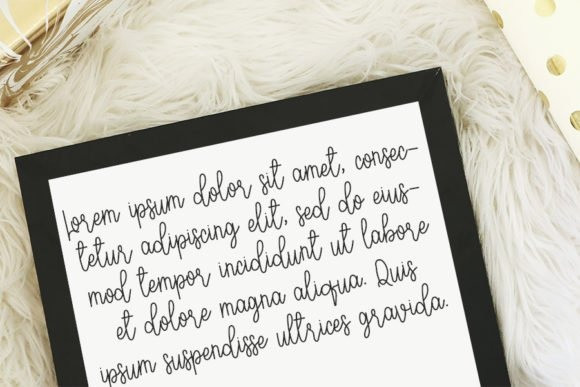 Lorem ipsum dolor sit amet, consec-
tetur adipiscing elit, sed do eius-
mod tempor incididunt ut labore
et dolore magna aliqua. Quis
ipsum suspendisse ultrices gravida.